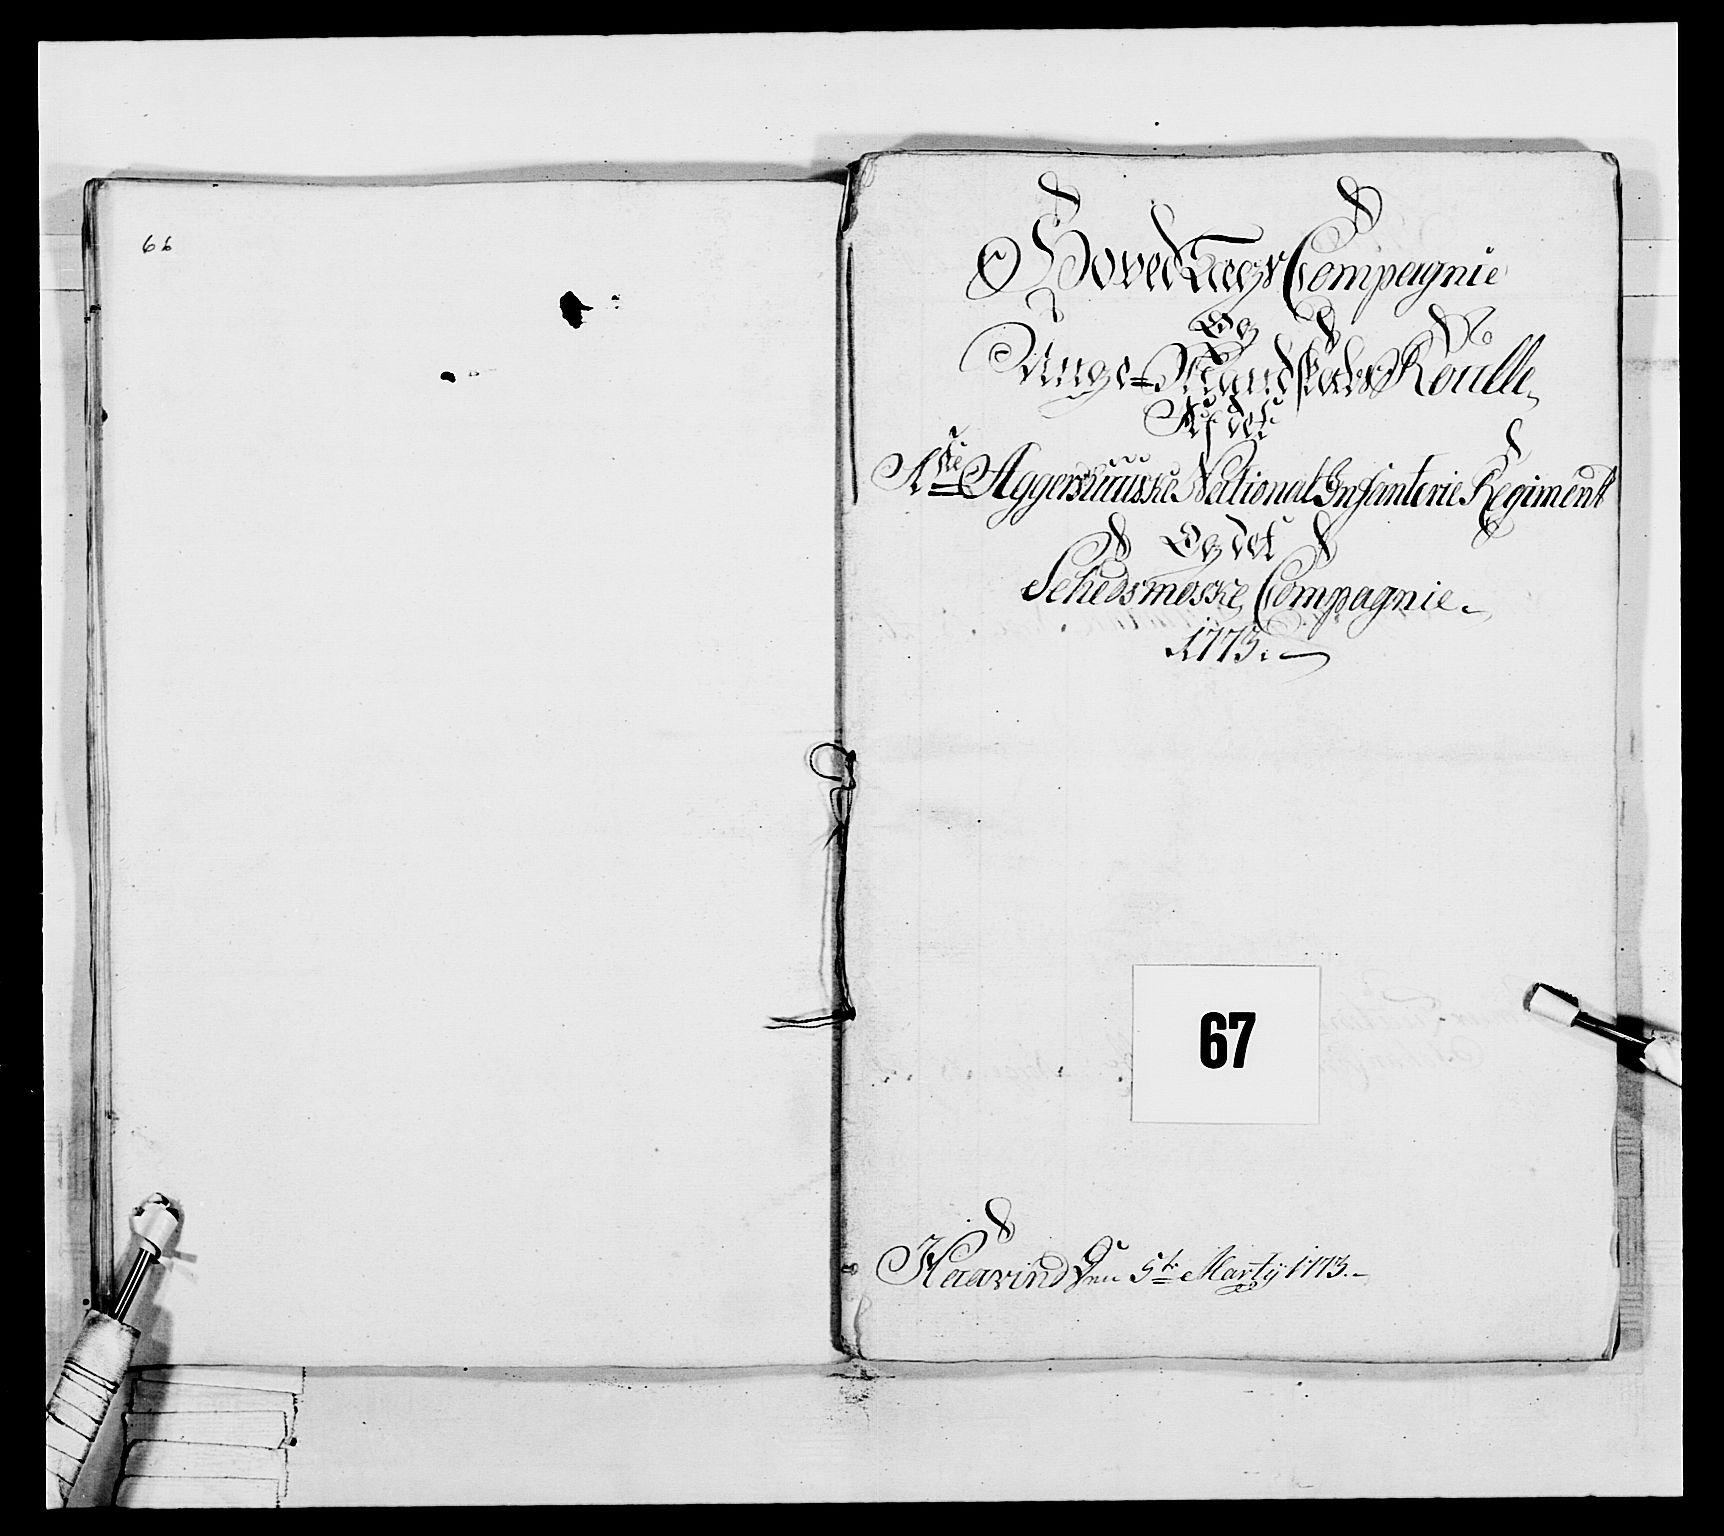 66
Hoved Lægs Compagnie
Og
Unge=Mandskabs Roulle,
Af det
1ste Aggershuuske National Infanterie Regiment
Og det
Schedsmoske, Compagnie.
1773.
67
Haavind den 5te Marty 1773.